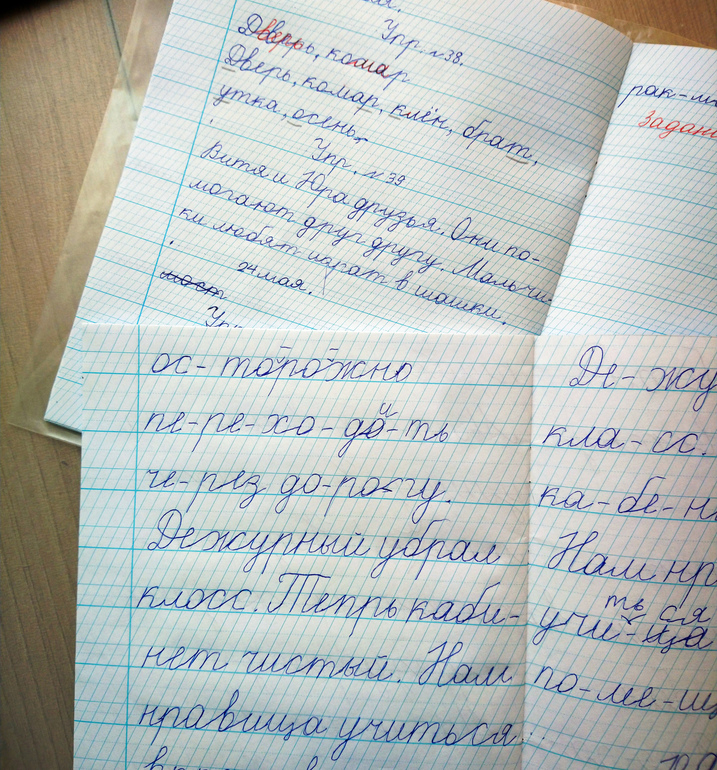 Упр. №38.
Дверь, комар
Дверь, комар, клён, брат,
утка, осень.
Упр. №39
Витя и Юра друзья. Они по-
могают друг другу. Мальчи-
ки любят играт в шашки.
24 мая.
мост
рак-
ос-торожно
пе-ре-хо-ди-ть
че-рез до-ро-гу.
Дежурный убрал
класс. Тепрь каби-
нет чистый. Нам
нравица учиться
Де-жу
кла-сс.
ка-бе-н
Нам нр
учи-ться
по-ме-щ